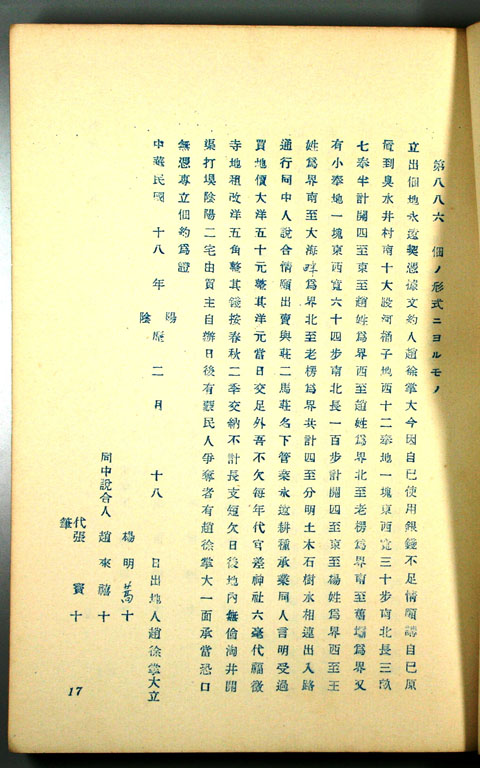 第八八六 佃ノ形式ニヨルモノ
立出佃地永遠契憑據文約人趙徐掌大今因自己使用銀錢不足情願將自己原
佃到臭水井村南十大股河捅子地西十二奉地一塊東西寬三十步南北長三
七奉半計開四至東至趙姓爲界西至趙姓爲界北至老楞爲界南至舊壩爲界又
有小奉地一塊東西寬六十四步南北長一百步計開四至東至楊姓爲界西至王
姓爲界南至大海畔爲界北至老楞爲界共計四至分明土木石樹水相連出入路
通行同中人說合情願出賣與莊二馬莊名下管業永遠耕種承業同人言明受過
買地價大洋五十元整其洋元當日交足外吾不欠每年代官差神社六毫代福徵
寺地租改洋五角整其錢按春秋二季交納不計長支短欠日後地內無偷淘井開
渠打壩陰陽二宅由買主自辦日後有蒙民人爭奪者有趙徐掌大一面承當恐口
無憑專立佃約爲證
中華民國十八年陽陰曆二月十八日出地人趙徐掌大立
同中說合人 楊明萬十
趙來禧十
代筆 張賓十
17